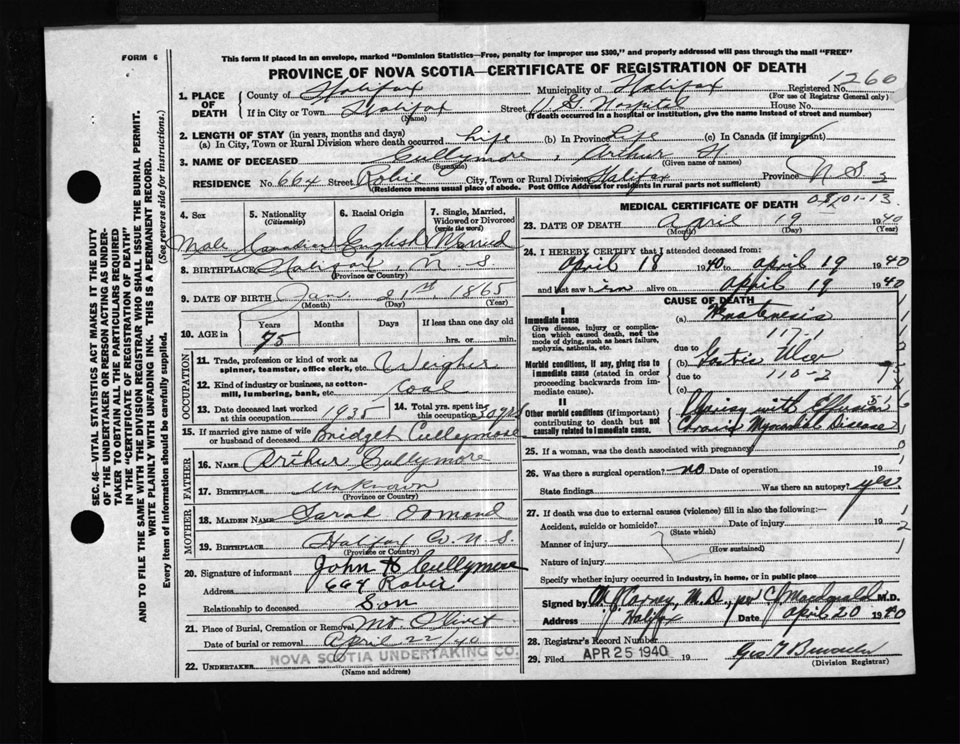 FORM 6
This form if placed in an envelope, marked "Dominion Statistics—Free, penalty for improper use $300," and properly addressed will pass through the mail "FREE"
PROVINCE OF NOVA SCOTIA—CERTIFICATE OF REGISTRATION OF DEATH
1260
1. PLACE OF DEATH
County of Halifax Municipality of Halifax Registered No.
(For use of Registrar General only)
If in City or Town Halifax Street V. G. Hospital House No.
(Name) (If death occurred in a hospital or institution, give the name instead of street and number)
2. LENGTH OF STAY (in years, months and days)
(a) In City, Town or Rural Division where death occurred Life (b) In Province Life (c) In Canada (if immigrant)
3. NAME OF DECEASED Cullymore, Arthur H.
(Surname) (Given name or names)
RESIDENCE No. 664 Street Robie City, Town or Rural Division Halifax Province N S
(Residence means usual place of abode. Post Office Address for residents in rural parts not sufficient)
4. Sex
5. Nationality
(Citizenship)
6. Racial Origin
7. Single, Married, Widowed or Divorced
(write the word)
Male Canadian English Married
8. BIRTHPLACE Halifax, N. S.
(Province or Country)
9. DATE OF BIRTH Jan. 21st, 1865
(Month) (Day) (Year)
10. AGE in
Years Months Days If less than one day old
75 hrs. or min.
OCCUPATION
11. Trade, profession or kind of work as spinner, teamster, office clerk, etc. Weigher
12. Kind of industry or business, as cotton-mill, lumbering, bank, etc. Coal
13. Date deceased last worked at this occupation 1935
14. Total yrs. spent in this occupation 30 yrs
15. If married give name of wife or husband of deceased Bridget Cullymore
FATHER
16. NAME Arthur Cullymore
17. BIRTHPLACE Unknown
(Province or Country)
MOTHER
18. MAIDEN NAME Sarah Ormond
19. BIRTHPLACE Halifax Co. N. S.
(Province or Country)
20. Signature of informant John H Cullymore
Address 664 Robie
Relationship to deceased Son
21. Place of Burial, Cremation or Removal Mt Olivet
Date of burial or removal April 22/40
22. UNDERTAKER NOVA SCOTIA UNDERTAKING CO.
(Name and address)
MEDICAL CERTIFICATE OF DEATH
23. DATE OF DEATH April 19 1940
(Month) (Day) (Year)
24. I HEREBY CERTIFY that I attended deceased from:
April 18 1940 to April 19 1940
and last saw him alive on April 19 1940
CAUSE OF DEATH
I
Immediate cause (a) Hematemesis
Give disease, injury or complication which caused death, not the mode of dying, such as heart failure, asphyxia, asthenia, etc.
117-1
due to Gastric Ulcer
Morbid conditions, if any, giving rise to immediate cause (stated in order proceeding backwards from immediate cause).
due to 110-2
II
Other morbid conditions (if important) contributing to death but not causally related to immediate cause.
Pleurisy with Effusion
Chronic Myocardial Disease
25. If a woman, was the death associated with pregnancy
26. Was there a surgical operation? no Date of operation 19
State findings Was there an autopsy? yes
27. If death due to external causes (violence) fill in also the following:—
Accident, suicide or homicide? Date of injury 19
(State which)
Manner of injury
(How sustained)
Nature of injury
Specify whether injury occurred in industry, in home, or in public place
Signed by M.D., per C J Macdonald M.D.
Address Halifax Date April 20 1940
28. Registrar's Record Number
29. Filed APR 25 1940 19
(Division Registrar)
SEC. 46—VITAL STATISTICS ACT MAKES IT THE DUTY
OF THE UNDERTAKER OR PERSON ACTING AS UNDER-
TAKER TO OBTAIN ALL THE PARTICULARS REQUIRED
IN THE "CERTIFICATE OF REGISTRATION OF DEATH"
AND TO FILE THE SAME WITH THE DIVISION REGISTRAR WHO SHALL ISSUE THE BURIAL PERMIT.
WRITE PLAINLY WITH UNFADING INK. THIS IS A PERMANENT RECORD.
Every item of information should be carefully supplied. (See reverse side for instructions.)